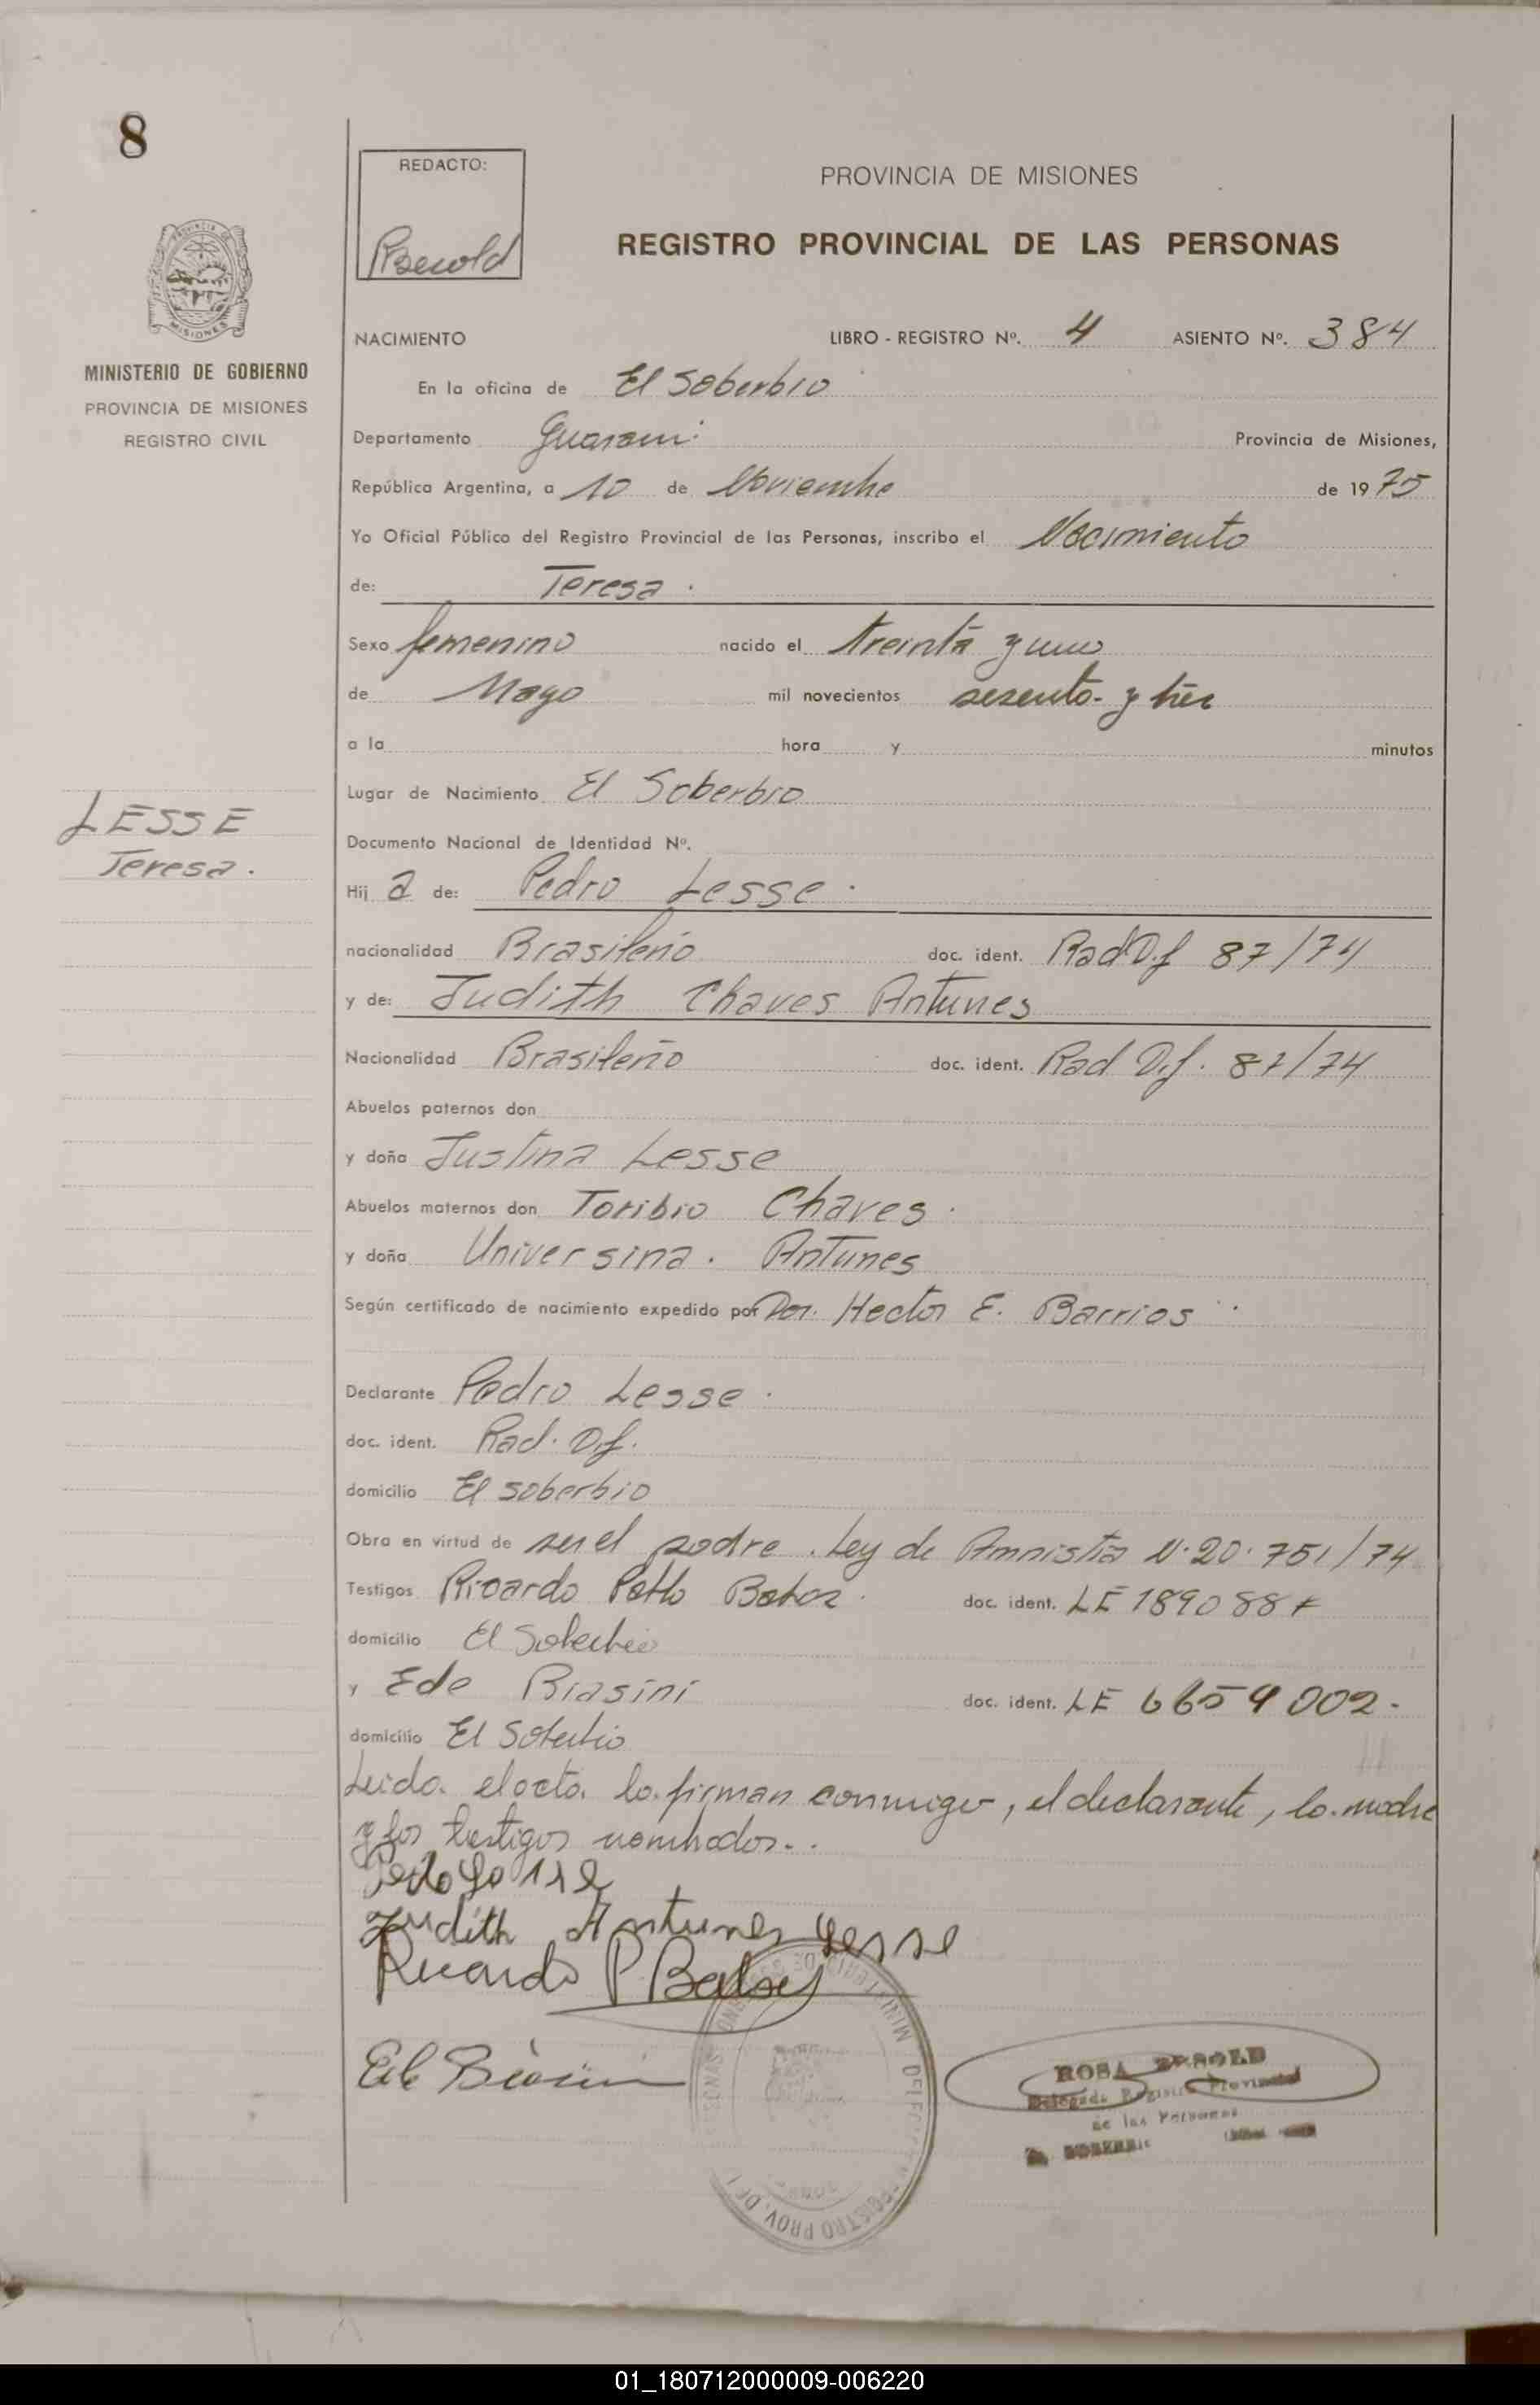 8
REDACTO:
PROVINCIA DE MISIONES
REGISTRO PROVINCIAL DE LAS PERSONAS
PROVINCIA DE
MISIONES
MINISTERIO DE GOBIERNO
PROVINCIA DE MISIONES
REGISTRO CIVIL
NACIMIENTO LIBRO - REGISTRO Nº. 4 ASIENTO Nº. 384
En la oficina de El Soberbio
Departamento Guarani Provincia de Misiones,
República Argentina, a 10 de Noviembre de 1975
Yo Oficial Público del Registro Provincial de las Personas, inscribo el Nacimiento
de: Teresa.
Sexo femenino nacido el treinta y uno
de Mayo mil novecientos sesenta y tres
a la hora y minutos
Lugar de Nacimiento El Soberbio
LESSE
Teresa.
Documento Nacional de Identidad Nº.
Hij a de: Pedro Lesse.
nacionalidad Brasileño doc. ident. Rad Df 87/74
y de: Judith Chaves Antunes
Nacionalidad Brasileño doc. ident. Rad Df. 87/74
Abuelos paternos don
y doña Justina Lesse
Abuelos maternos don Toribio Chaves.
y doña Universina. Antunes
Según certificado de nacimiento expedido por Dor. Hector E. Barrios
Declarante Pedro Lesse.
doc. ident. Rad. Df.
domicilio El Soberbio
Obra en virtud de ser el padre. Ley de Amnistia N. 20.751/74
Testigos Ricardo doc. ident. LE
domicilio El Soberbio
y Ede Biasini doc. ident. LE 6659002.
domicilio El Soberbio
Leida el acta la firman conmigo, el declarante, la madre
y los testigos nombrados..
Judith Antunes Lesse
Ricardo P.
Ede Biasini
ROSA BESOLD
Delegada Registro Provincial
de las Personas
EL SOBERBIO
REGISTRO PROV. DE
01_180712000009-006220